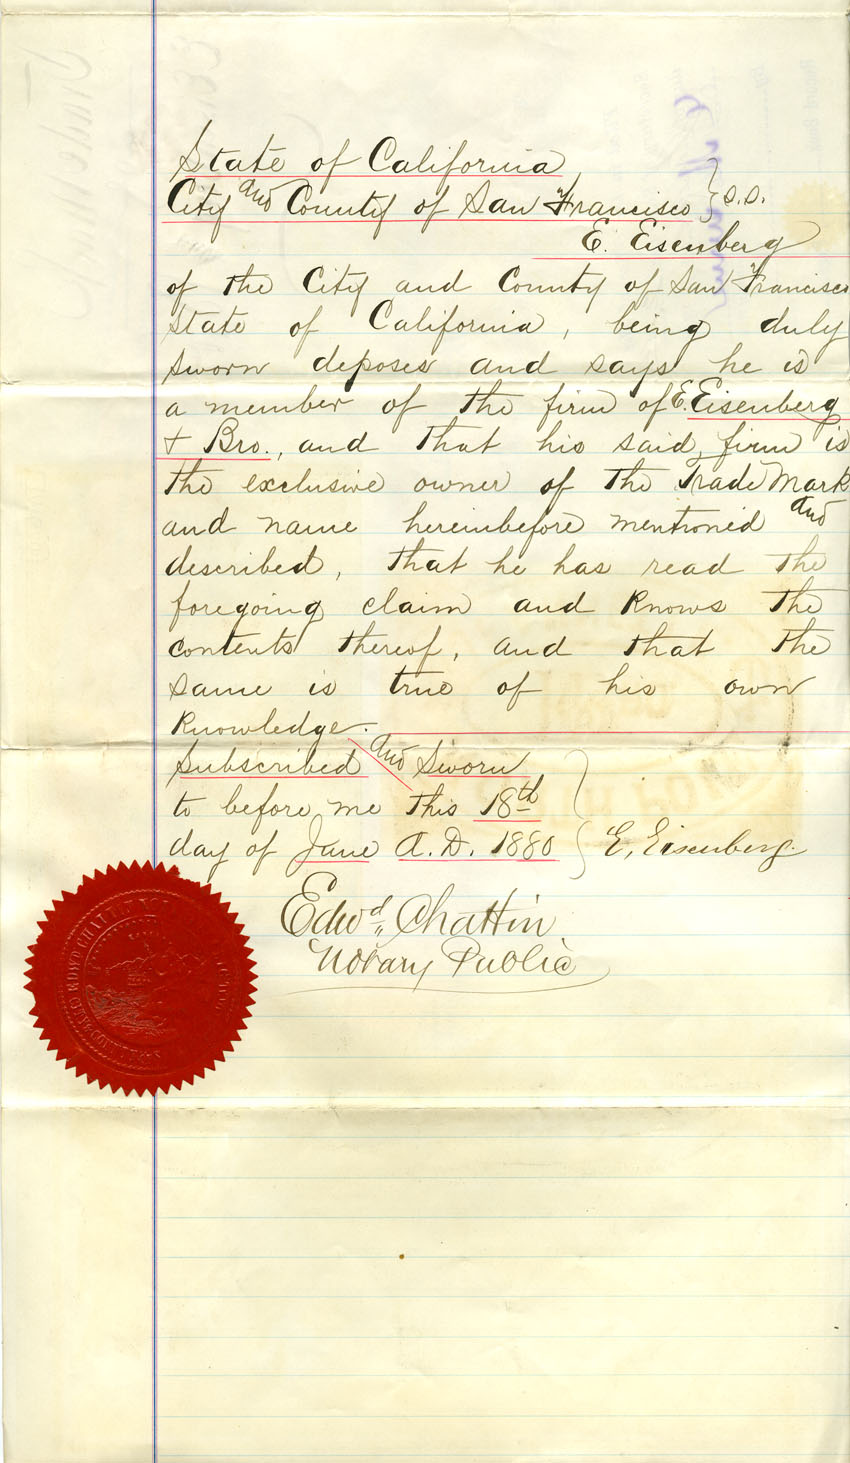 State of California
City and County of San Francisco } S.S.
E. Eisenberg
of the City and County of San Francisco
State of California, being duly
sworn deposes and says he is
a member of the firm of E. Eisenberg
& Bro., and that his said firm is
the exclusive owner of the Trade Mark
and name hereinbefore mentioned and
described, that he has read the
foregoing claim and knows the
contents thereof, and that the
same is true of his own
knowledge.
Subscribed and Sworn
to before me this 18th
day of June A.D. 1880 } E. Eisenberg.
Edwd. Chattin
Notary Public